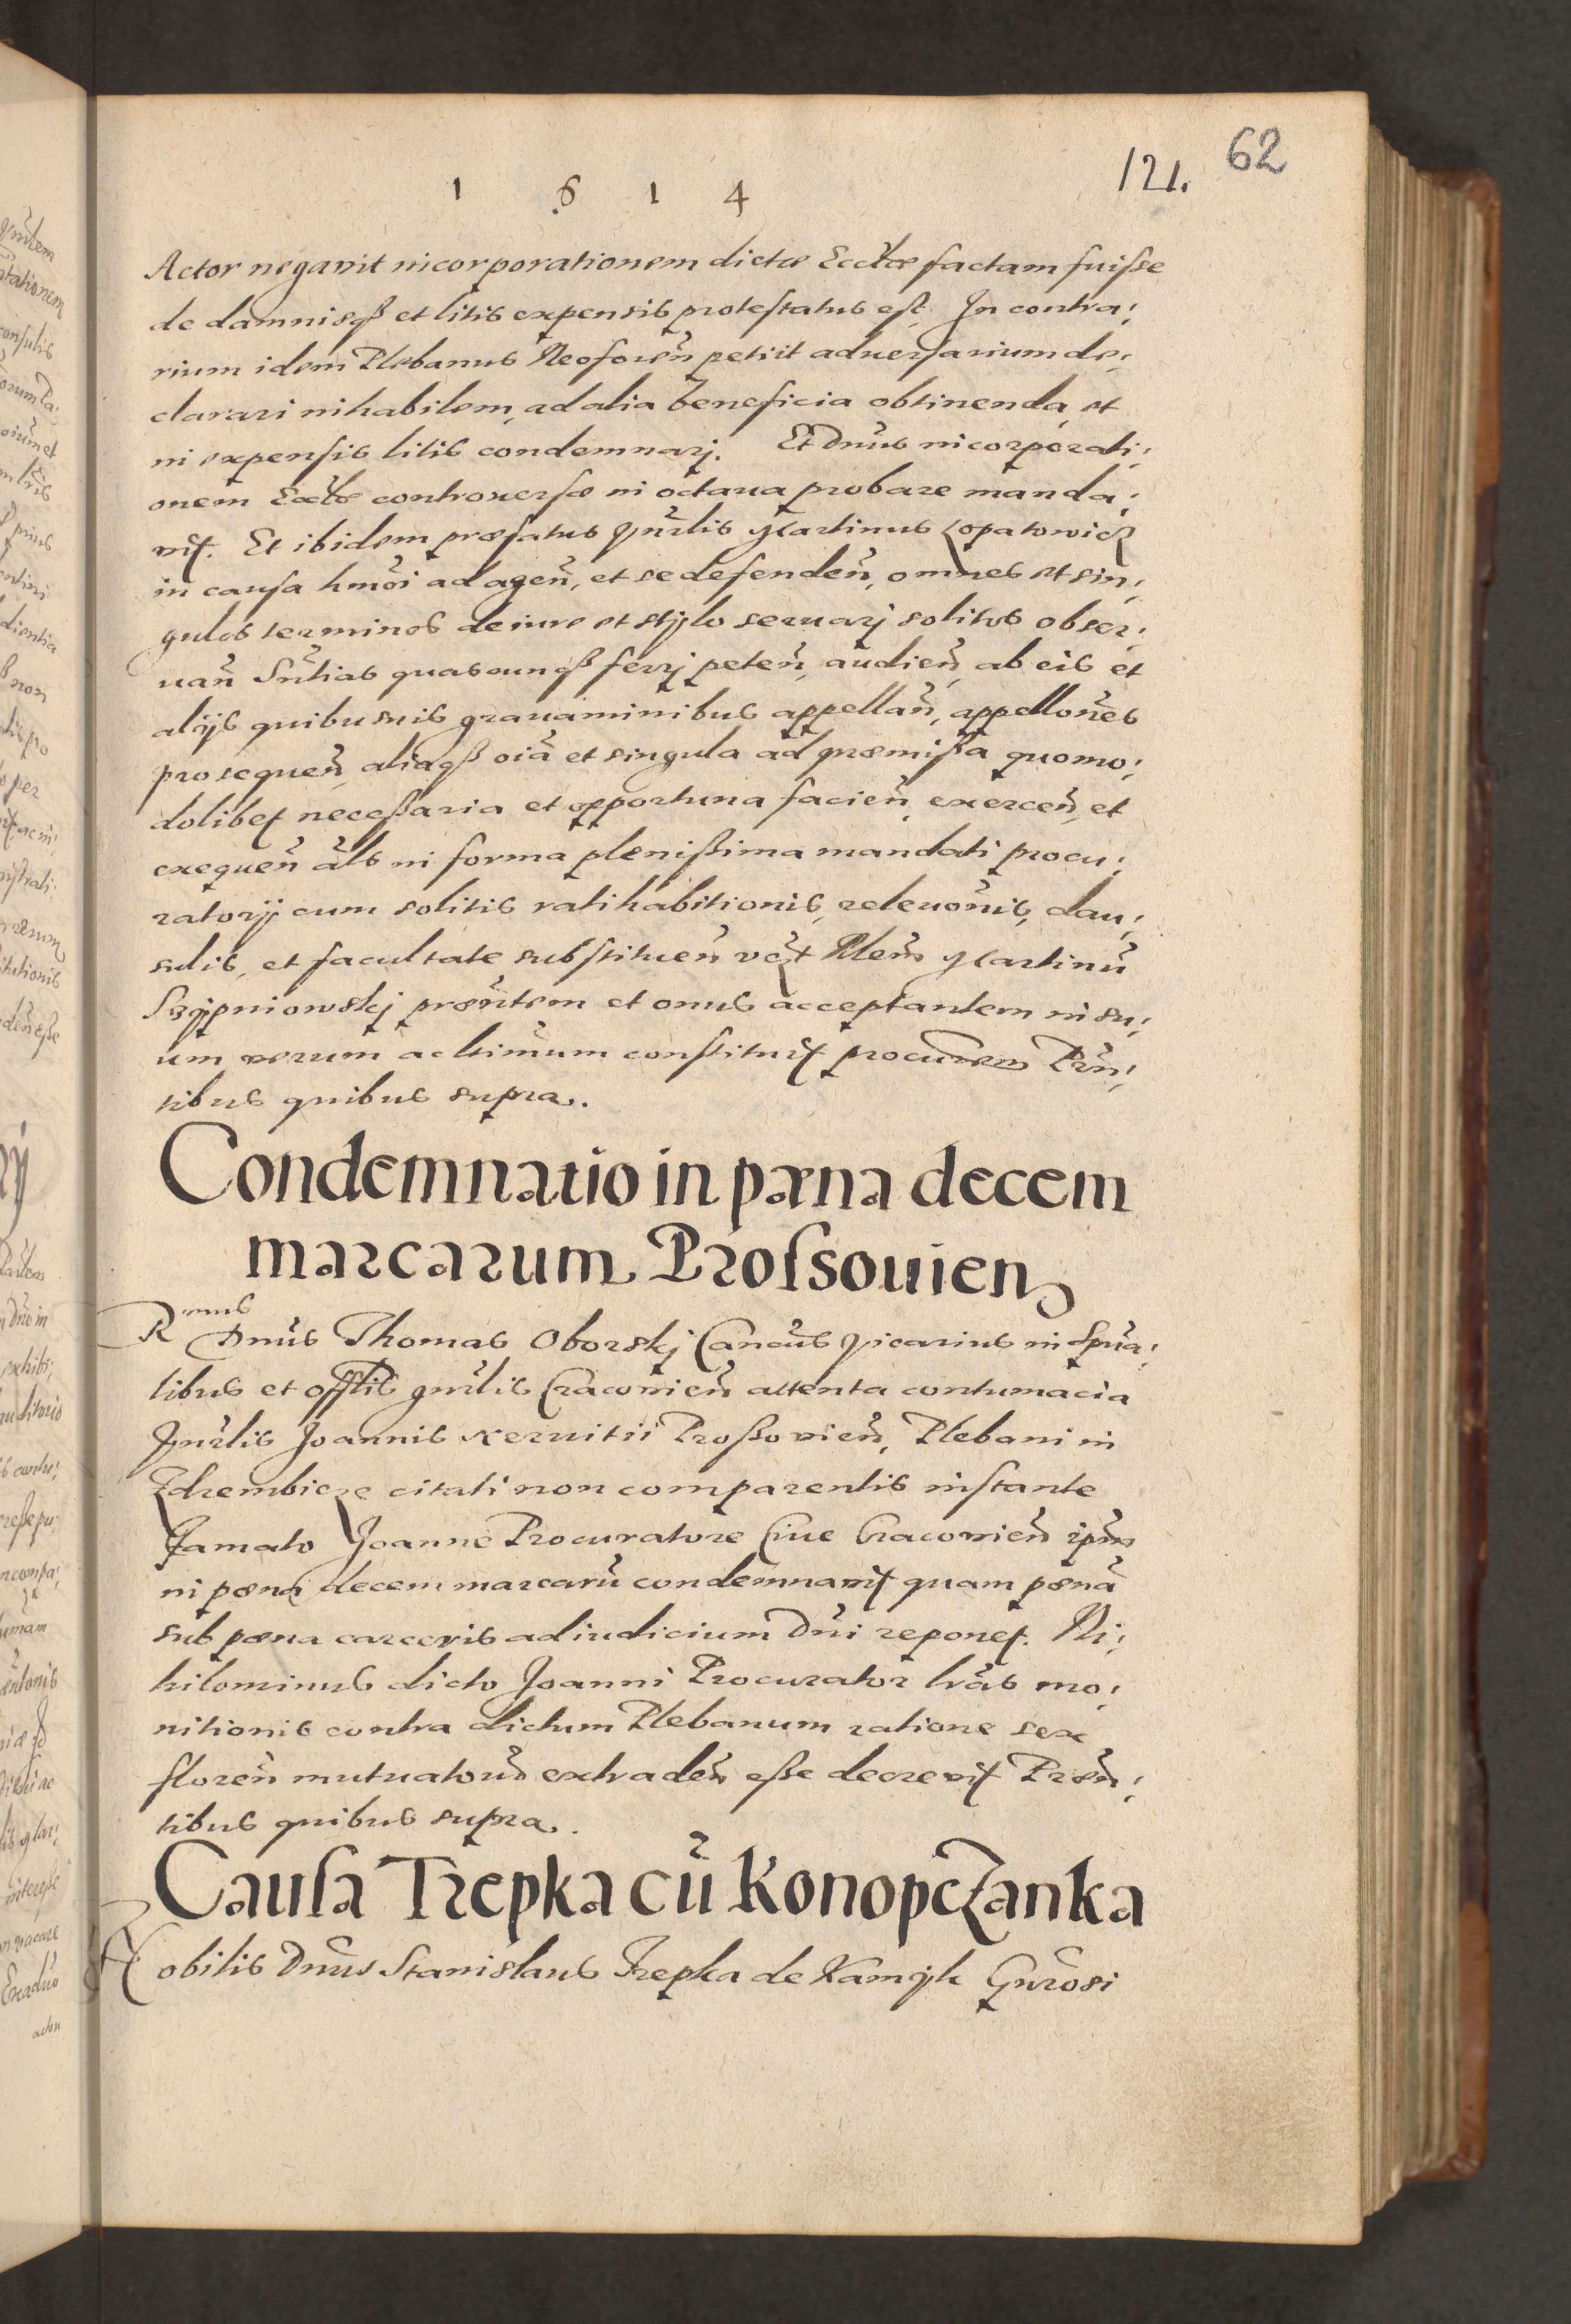 1 6 1 4
121. 62
Actor negavit incorporationem dictæ Eccł̃æ factam fuisse
de damnisqȝ et litis expensis protestatus est. In contra:
rium idem Plebanus Neoforeñ petiit adversarium de:
clarari inhabilem, ad alia beneficia obtinenda, et
in expensis litis condemnarj. Et Dnũs incorporati:
onem Eccł̃æ controversæ in octava probare manda:
vit. Et ibidem præfatus hnrl̃is Martinus Lopatowicz
in causa hmõi ad ageñ, et se defendeñ, omnes et sin:
gulos terminos de iure et stylo servarj solitos obser:
vañ Sñtias quascunqȝ ferrj peteñ, audieñ, ab eis et
alijs quibusuis gravaminibus appellañ, appellõnes
prosequeñ, aliaqȝ oĩa et singula ad præmissa quomo:
dolibet necessaria et opportuna facieñ, exerceñ, et
exequeñ als̃ in forma plenissima mandati procu:
ratorij cum solitis ratihabitionis, relevõnis, clau:
sulis, et facultate substitueñ Martinũ
præñtem et onus acceptantem in su:
um verum ac ltimũm constituit procurẽm Præñ:
tibus quibus supra.
Condemnatio in pæna decem
marcarum Prossovien
Rmus
Dnũs Thomas Oborskj Cancũs Vicarius in Spũa:
libus et Offl̃is gnrl̃is Cracovieñ attenta contumacia
hnrl̃is Joannis Xervitii Prossovieñ, Plebani in
Zdrembicze citati non comparentis instante
Famato Joanne Procuratore Cive Cracovieñ ipm̃
in pœna decem marcarũ condemnavit quam pœnã
sub pœna carceris ad iudicium Dnĩ reponet. Ni:
hilominus dicto Joanni Procurator lrãs mo:
nitionis contra dictum Plebanum ratione sex
floreñ mutuatorũ extradeñ esse decrevit Præñ:
tibus quibus supra.
Causa Trepka cũ Konopczanka
Nobilis Dnũs Stanislaus Trepka de Kamyk Gnrõsi